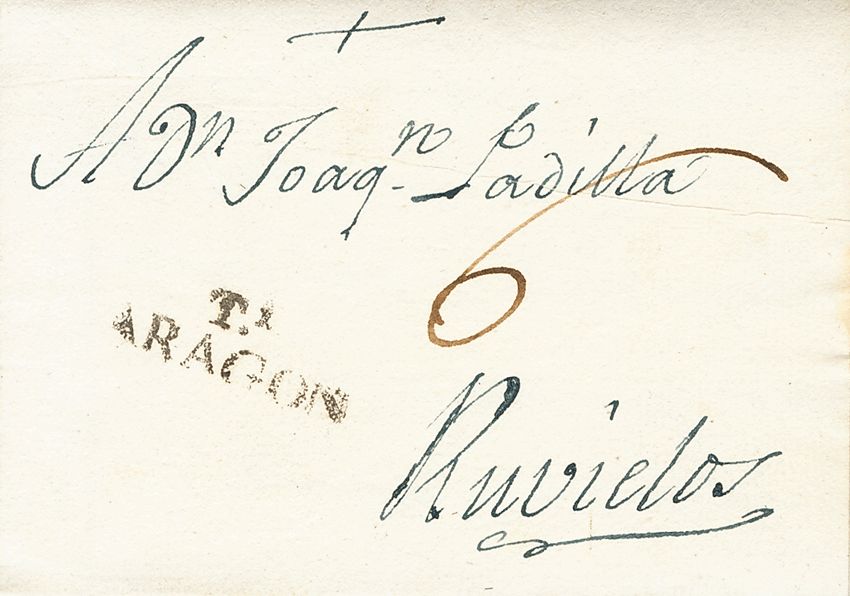 A Dn Joaq.n Padilla
6
T.A
ARAGON
Ruvielos